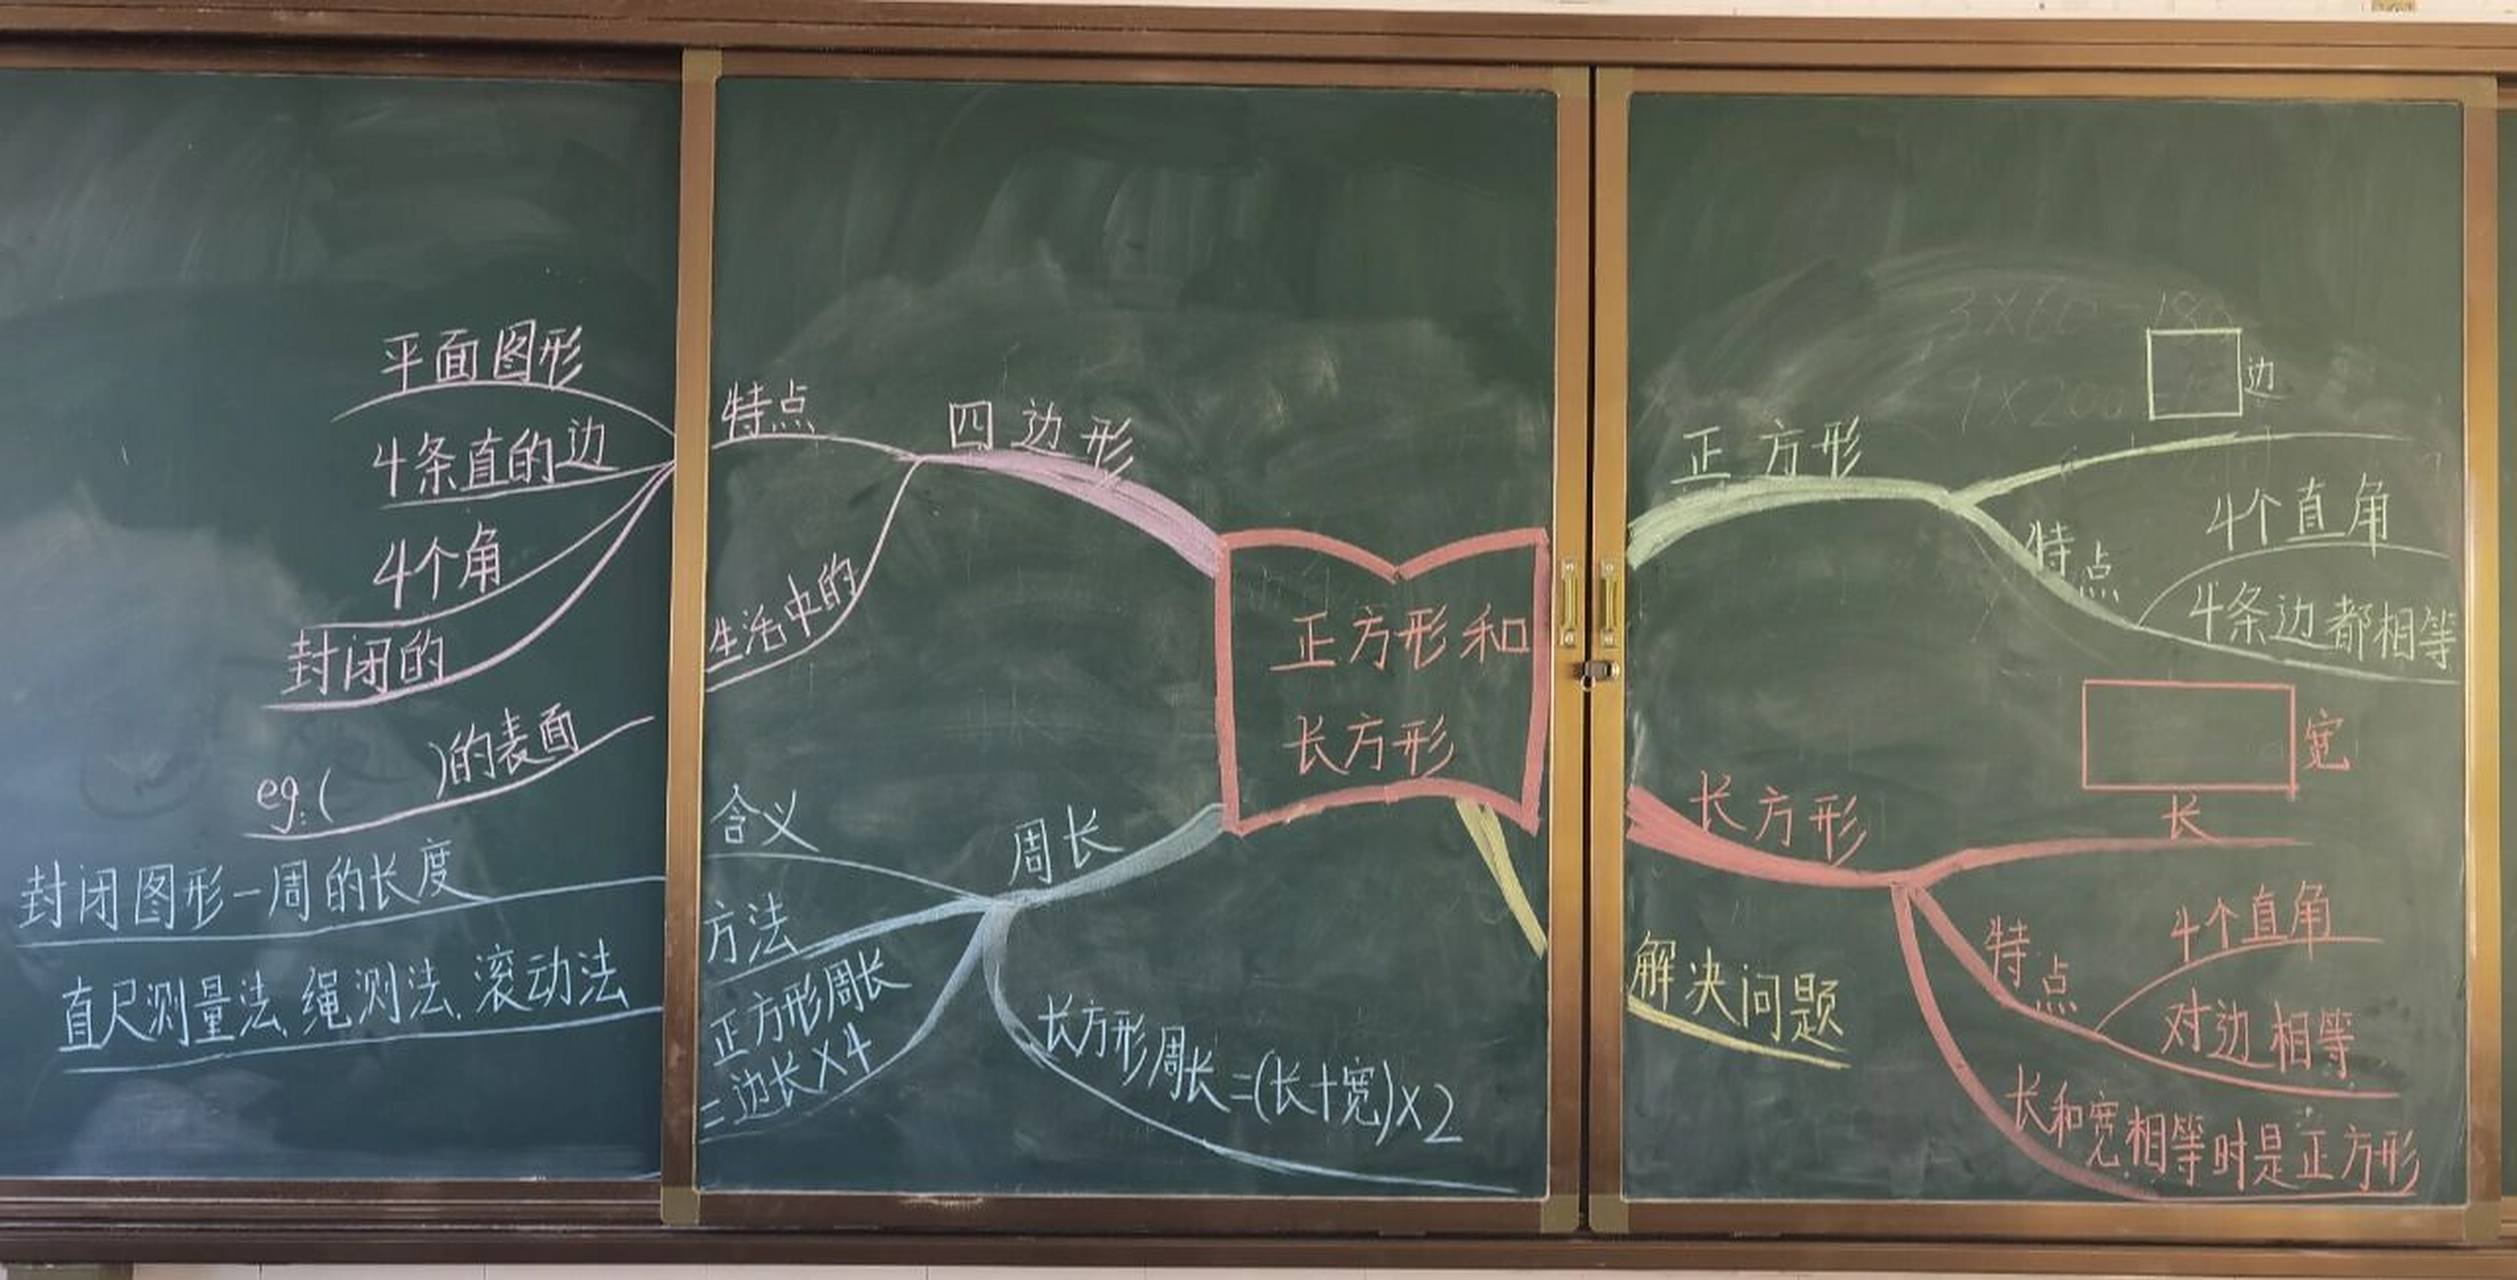 平面图形
4条直的边
4个角
封闭的
eg:(　　)的表面
封闭图形一周的长度
直尺测量法、绳测法、滚动法
特点
四边形
生活中的
正方形和
长方形
含义
周长
方法
正方形周长
=边长×4
长方形周长=(长+宽)×2
正方形
边
特点
4个直角
4条边都相等
长方形
宽
长
特点
4个直角
对边相等
长和宽相等时是正方形
解决问题